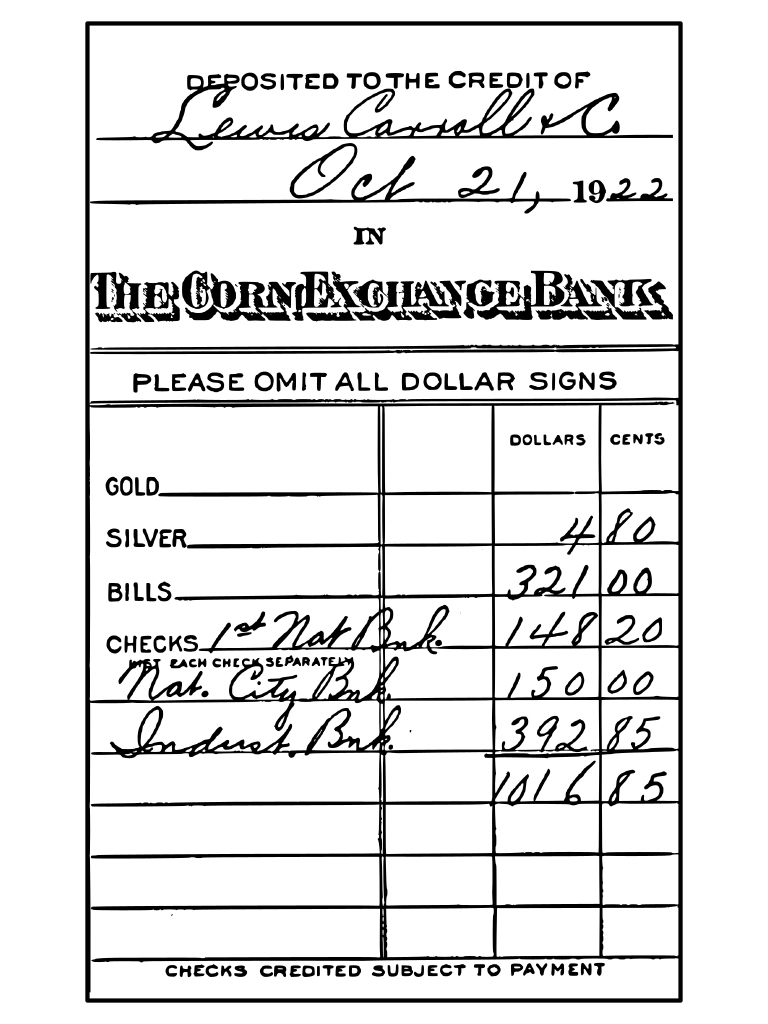 DEPOSITED TO THE CREDIT OF
Lewis Carroll & C.
Oct 21, 1922
IN
THE CORN EXCHANGE BANK
PLEASE OMIT ALL DOLLAR SIGNS
DOLLARS CENTS
GOLD
SILVER 4 80
BILLS 321 00
CHECKS 1st Nat Bnk. 148 20
LIST EACH CHECK SEPARATELY
Nat. City Bnk. 150 00
Indust. Bnk. 392 85
1016 85
CHECKS CREDITED SUBJECT TO PAYMENT